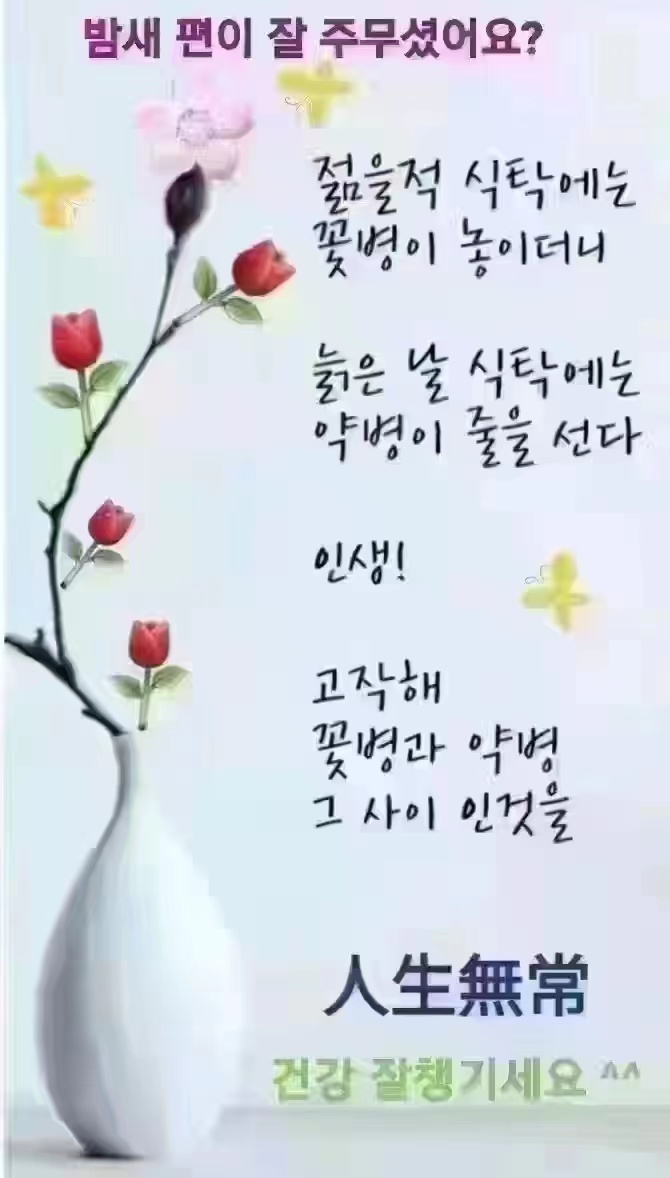 밤새 편이 잘 주무셨어요?
젊을적 식탁에는
꽃병이 놓이더니
늙은 날 식탁에는
약병이 줄을 선다
인생!
고작해
꽃병과 약병
그 사이 인것을
人生無常
건강 잘챙기세요 ^^